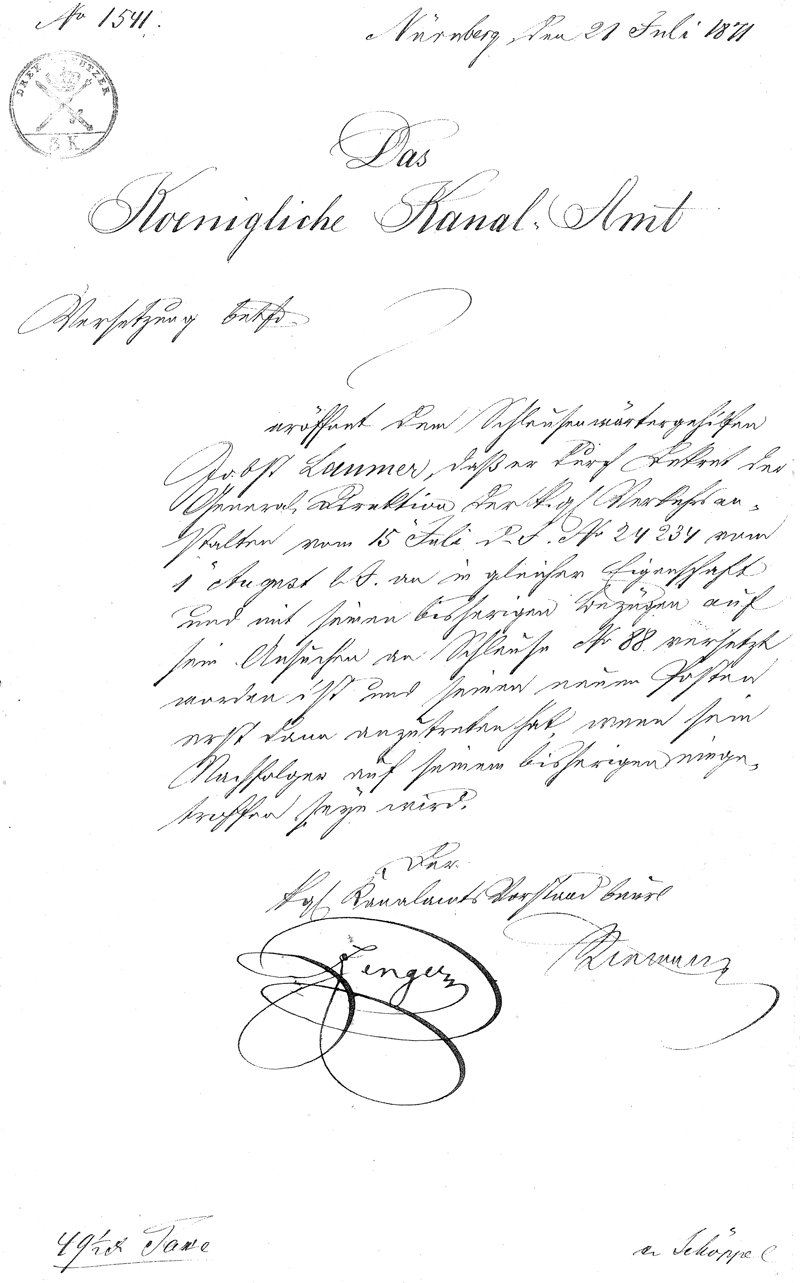 No 1541.
Nürnberg, den 21 Juli 1871
DREI KREUTZER
3 K.
Das
Koenigliche Kanal-Amt
Versetzung betfd
eröffnet dem Schleusenwärtergehilfen
Jobst Laumer, daß er durch Dekret der
General Direktion der kgl Verkehrsan-
stalten vom 15 Juli d. J. No 24234 vom
1 August l. J. an in gleicher Eigenschaft
und mit seinen bisherigen Bezügen auf
sein Ansuchen an Schleuse No 88 versetzt
worden ist und seinen neuen Posten
erst dann anzutreten hat, wenn sein
Nachfolger auf seinem bisherigen einge-
troffen seyn wird.
Der
kgl Kanalamts Vorstand beurl
Zenger
49 1/2 x Taxe
Schöppel